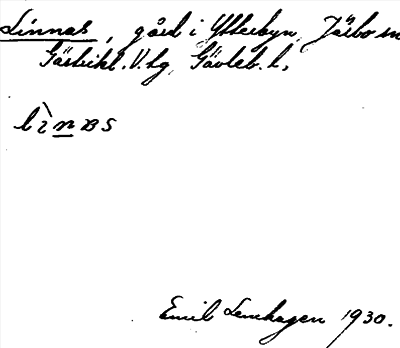 Linnas, gård i Ytterbyn, Järbo sn
Gästrikl. V. hg, Gävleb. l.
lìnas
Emil Lenhagen 1930.